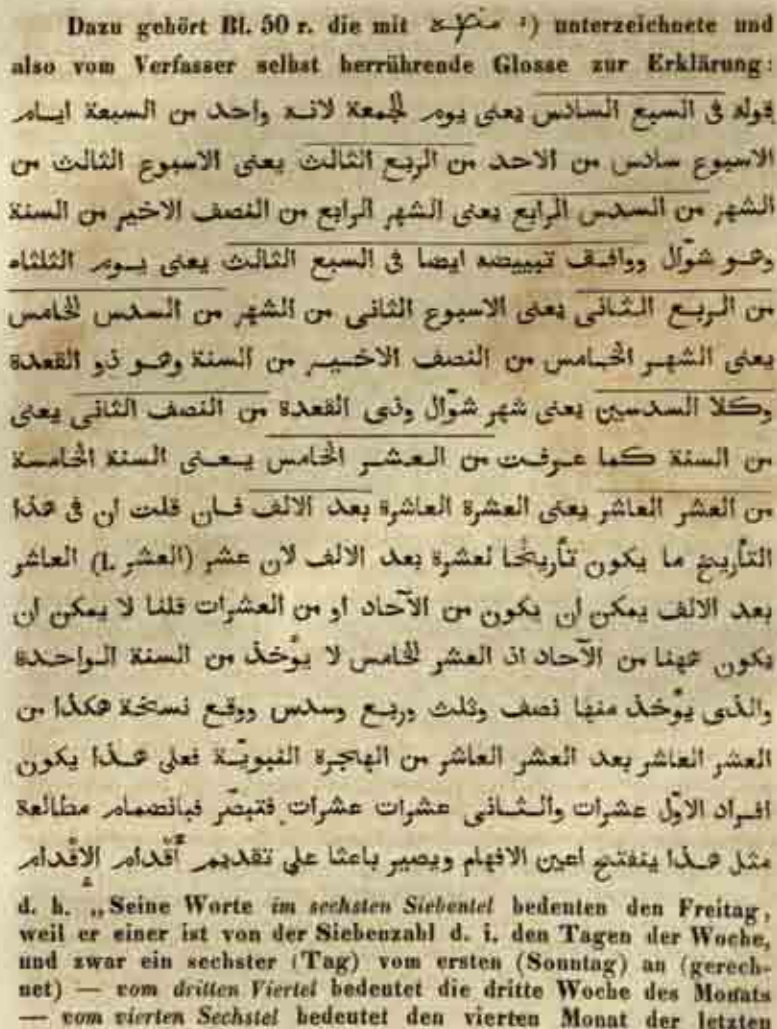 Dazu gehört Bl. 50 r. die mit منه ²) unterzeichnete und
also vom Verfasser selbst herrührende Glosse zur Erklärung:
قوله فى السبع السادس يعنى يوم الجمعة لانه واحد من السبعة ايام
الاسبوع سادس من الاحد من الربع الثالث يعنى الاسبوع الثالث من
الشهر من السدس الرابع يعنى الشهر الرابع من النصف الاخير من السنة
وهو شوّال ووافق تبييضه ايضا فى السبع الثالث يعنى يوم الثلثاء
من الربع الثانى يعنى الاسبوع الثانى من الشهر من السدس الخامس
يعنى الشهر الخامس من النصف الاخير من السنة وهو ذو القعدة
وكلا السدسين يعنى شهر شوّال وذى القعدة من النصف الثانى يعنى
من السنة كما عرفت من العشر الخامس يعنى السنة الخامسة
من العشر العاشر يعنى العشرة العاشرة بعد الالف فان قلت ان فى هذا
التأريخ ما يكون تأريخا لعشرة بعد الالف لان عشر (العشر .l) العاشر
بعد الالف يمكن ان يكون من الآحاد او من العشرات قلنا لا يمكن ان
يكون ههنا من الآحاد اذ العشر الخامس لا يؤخذ من السنة الواحدة
والذى يؤخذ منها نصف وثلث وربع وسدس ووقع نسخة هكذا من
العشر العاشر بعد العشر العاشر من الهجرة النبويّة فعلى هذا يكون
افراد الاوّل عشرات والثانى عشرات عشرات فتبصّر فبانضمام مطالعة
مثل هذا ينفتح اعين الافهام ويصير باعثا على تقديم أَقدام الإِقدام
d. h. „Seine Worte im sechsten Siebentel bedeuten den Freitag,
weil er einer ist von der Siebenzahl d. i. den Tagen der Woche,
und zwar ein sechster (Tag) vom ersten (Sonntag) an (gerech-
net) — vom dritten Viertel bedeutet die dritte Woche des Monats
— vom vierten Sechstel bedeutet den vierten Monat der letzten